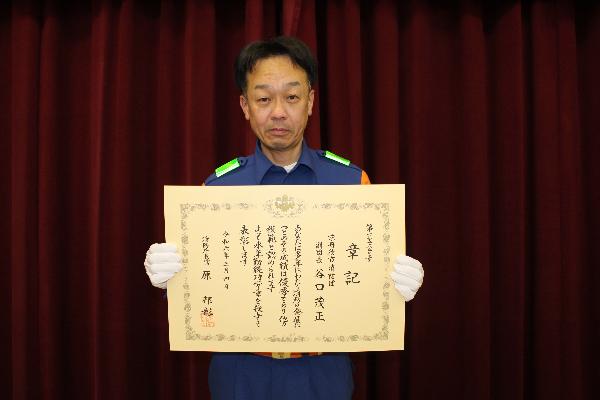 章記
京丹後市消防団
副団長 谷口茂正
あなたは多年にわたり消防の発展に
つとめその成績は優秀であり他の
模範と認められます
よって永年勤続功労章を授与し
表彰します
令和六年三月四日
消防庁長官 原 邦彰